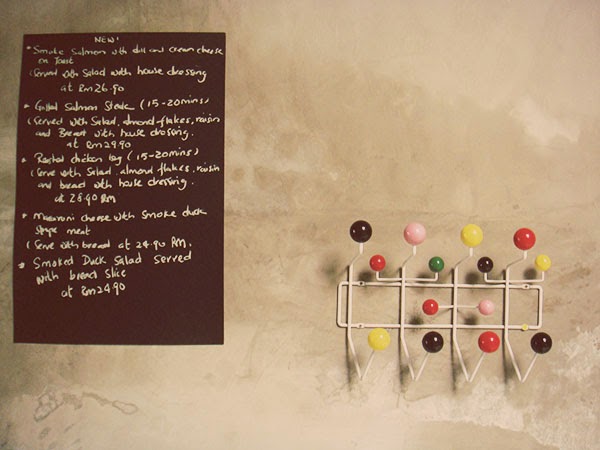 NEW!
* Smoke Salmon with dill and cream cheese
on Toast
(Served with Salad with house dressing
at RM26.90
* Grilled Salmon Steak (15-20mins)
(Served with Salad, almond flakes, raisin
and Bread with house dressing.
at RM29.90
* Roasted chicken leg (15-20mins)
(Serve with Salad, almond flakes, raisin
and bread with house dressing.
at 28.90 RM
* Macaroni cheese with smoke duck
meat
(Serve with bread at 24.90 RM.
* Smoked Duck Salad served
with bread slice
at RM24.90